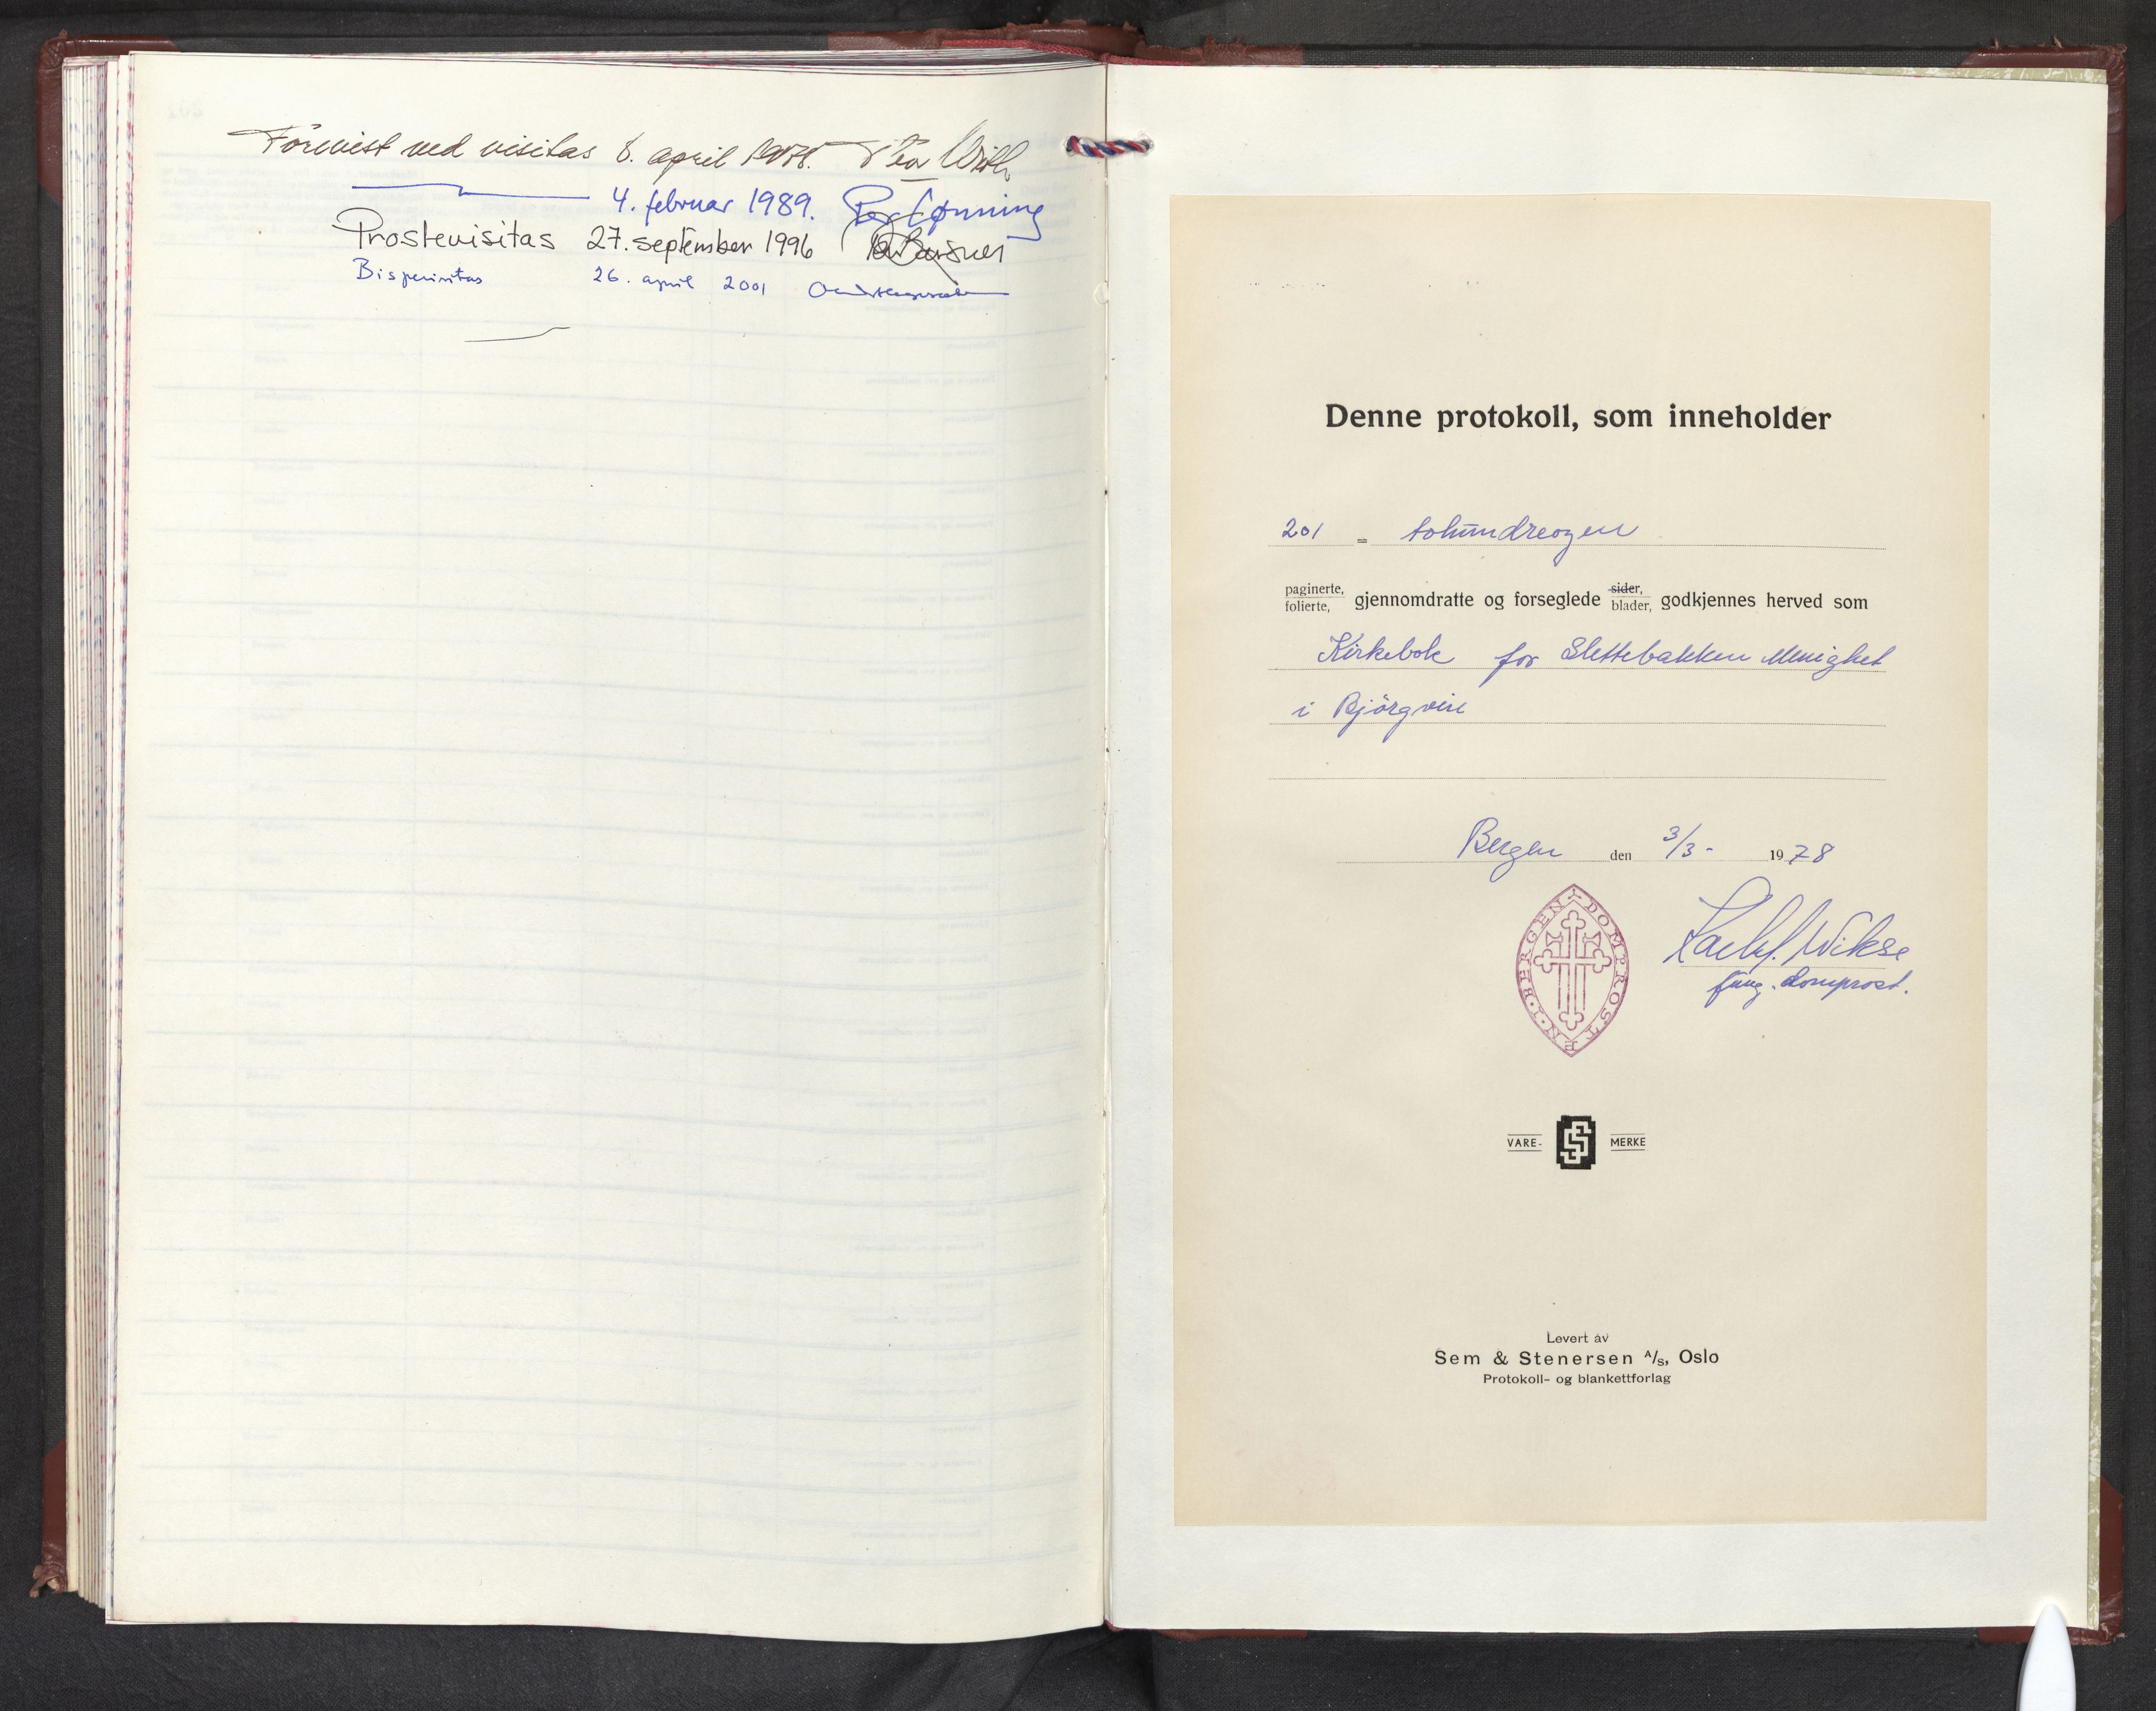 Förevist ved visitas 8. april 1978. Thor With
4. februar 1989. Per Lønning
Prostevisitas 27. september 1996
Bispevisitas 26. april 2001
Denne protokoll, som inneholder
201 = tohundreogen
paginerte,
folierte, gjennomdratte og forseglede sider, blader, godkjennes herved som
Kirkebok for Slettebakken Menighet
i Björgvin
Bergen den 3/3 - 1978
DOMPROSTEN I BERGEN
Wikse
fung. domprost.
VARE- MERKE
Levert av
Sem & Stenersen A/S, Oslo
Protokoll- og blankettforlag